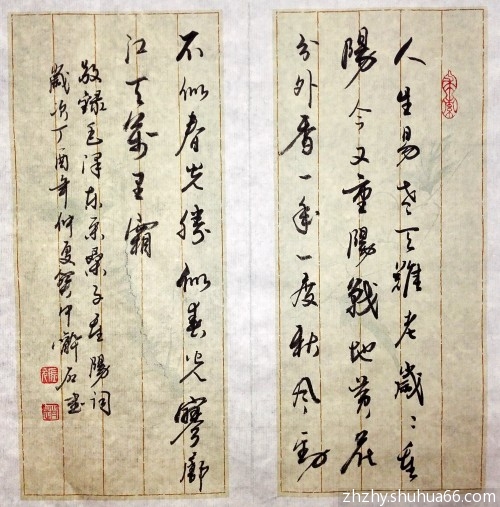 人生易老天難老歲〻重
陽今又重陽戰地黃花
分外香一年一度秋风勁
不似春光勝似春光寥廓
江天萬里霜
敬錄毛澤东采桑子重陽詞
歲次丁酉年仲夏 石書
zhzhy.shuhua66.com